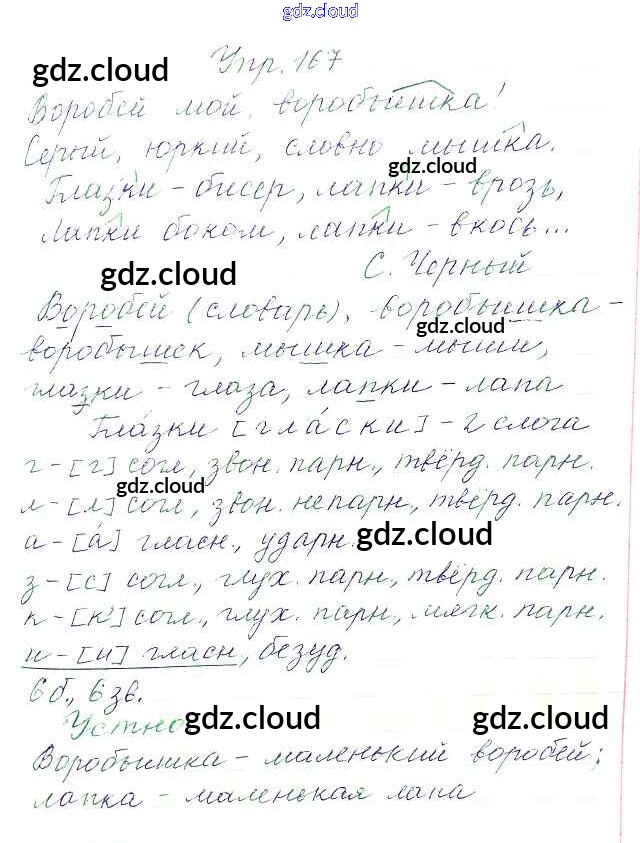 gdz.cloud
Упр. 167
gdz.cloud
Воробей мой, воробьишка!
Серый, юркий, словно мышка.
gdz.cloud
Глазки - бисер, лапки - врозь,
Лапки боком, лапки - вкось...
gdz.cloud
С. Чёрный
Воробей (словарь), воробьишка -
gdz.cloud
воробьишек, мышка - мыши,
глазки - глаза, лапки - лапа
Глазки [гла́ски] - 2 слога
г - [г] согл., звон. парн., твёрд. парн.
gdz.cloud
л - [л] согл., звон. непарн., твёрд. парн.
а - [а́] гласн., ударн.
gdz.cloud
з - [с] согл., глух. парн., твёрд. парн.
к - [к'] согл., глух. парн., мягк. парн.
и - [и] гласн., безуд.
6 б., 6 зв.
Устно
gdz.cloud gdz.cloud
Воробьишка - маленький воробей;
лапка - маленькая лапа